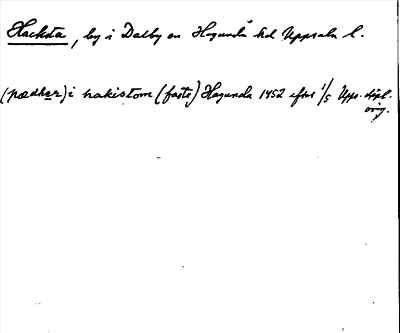 Hacksta, by i Dalby sn Hagunda hd Uppsala l.
(pædher) i hakistom (faste) Hagunda 1452 efter 1/5 Upps. dipl.
orig.